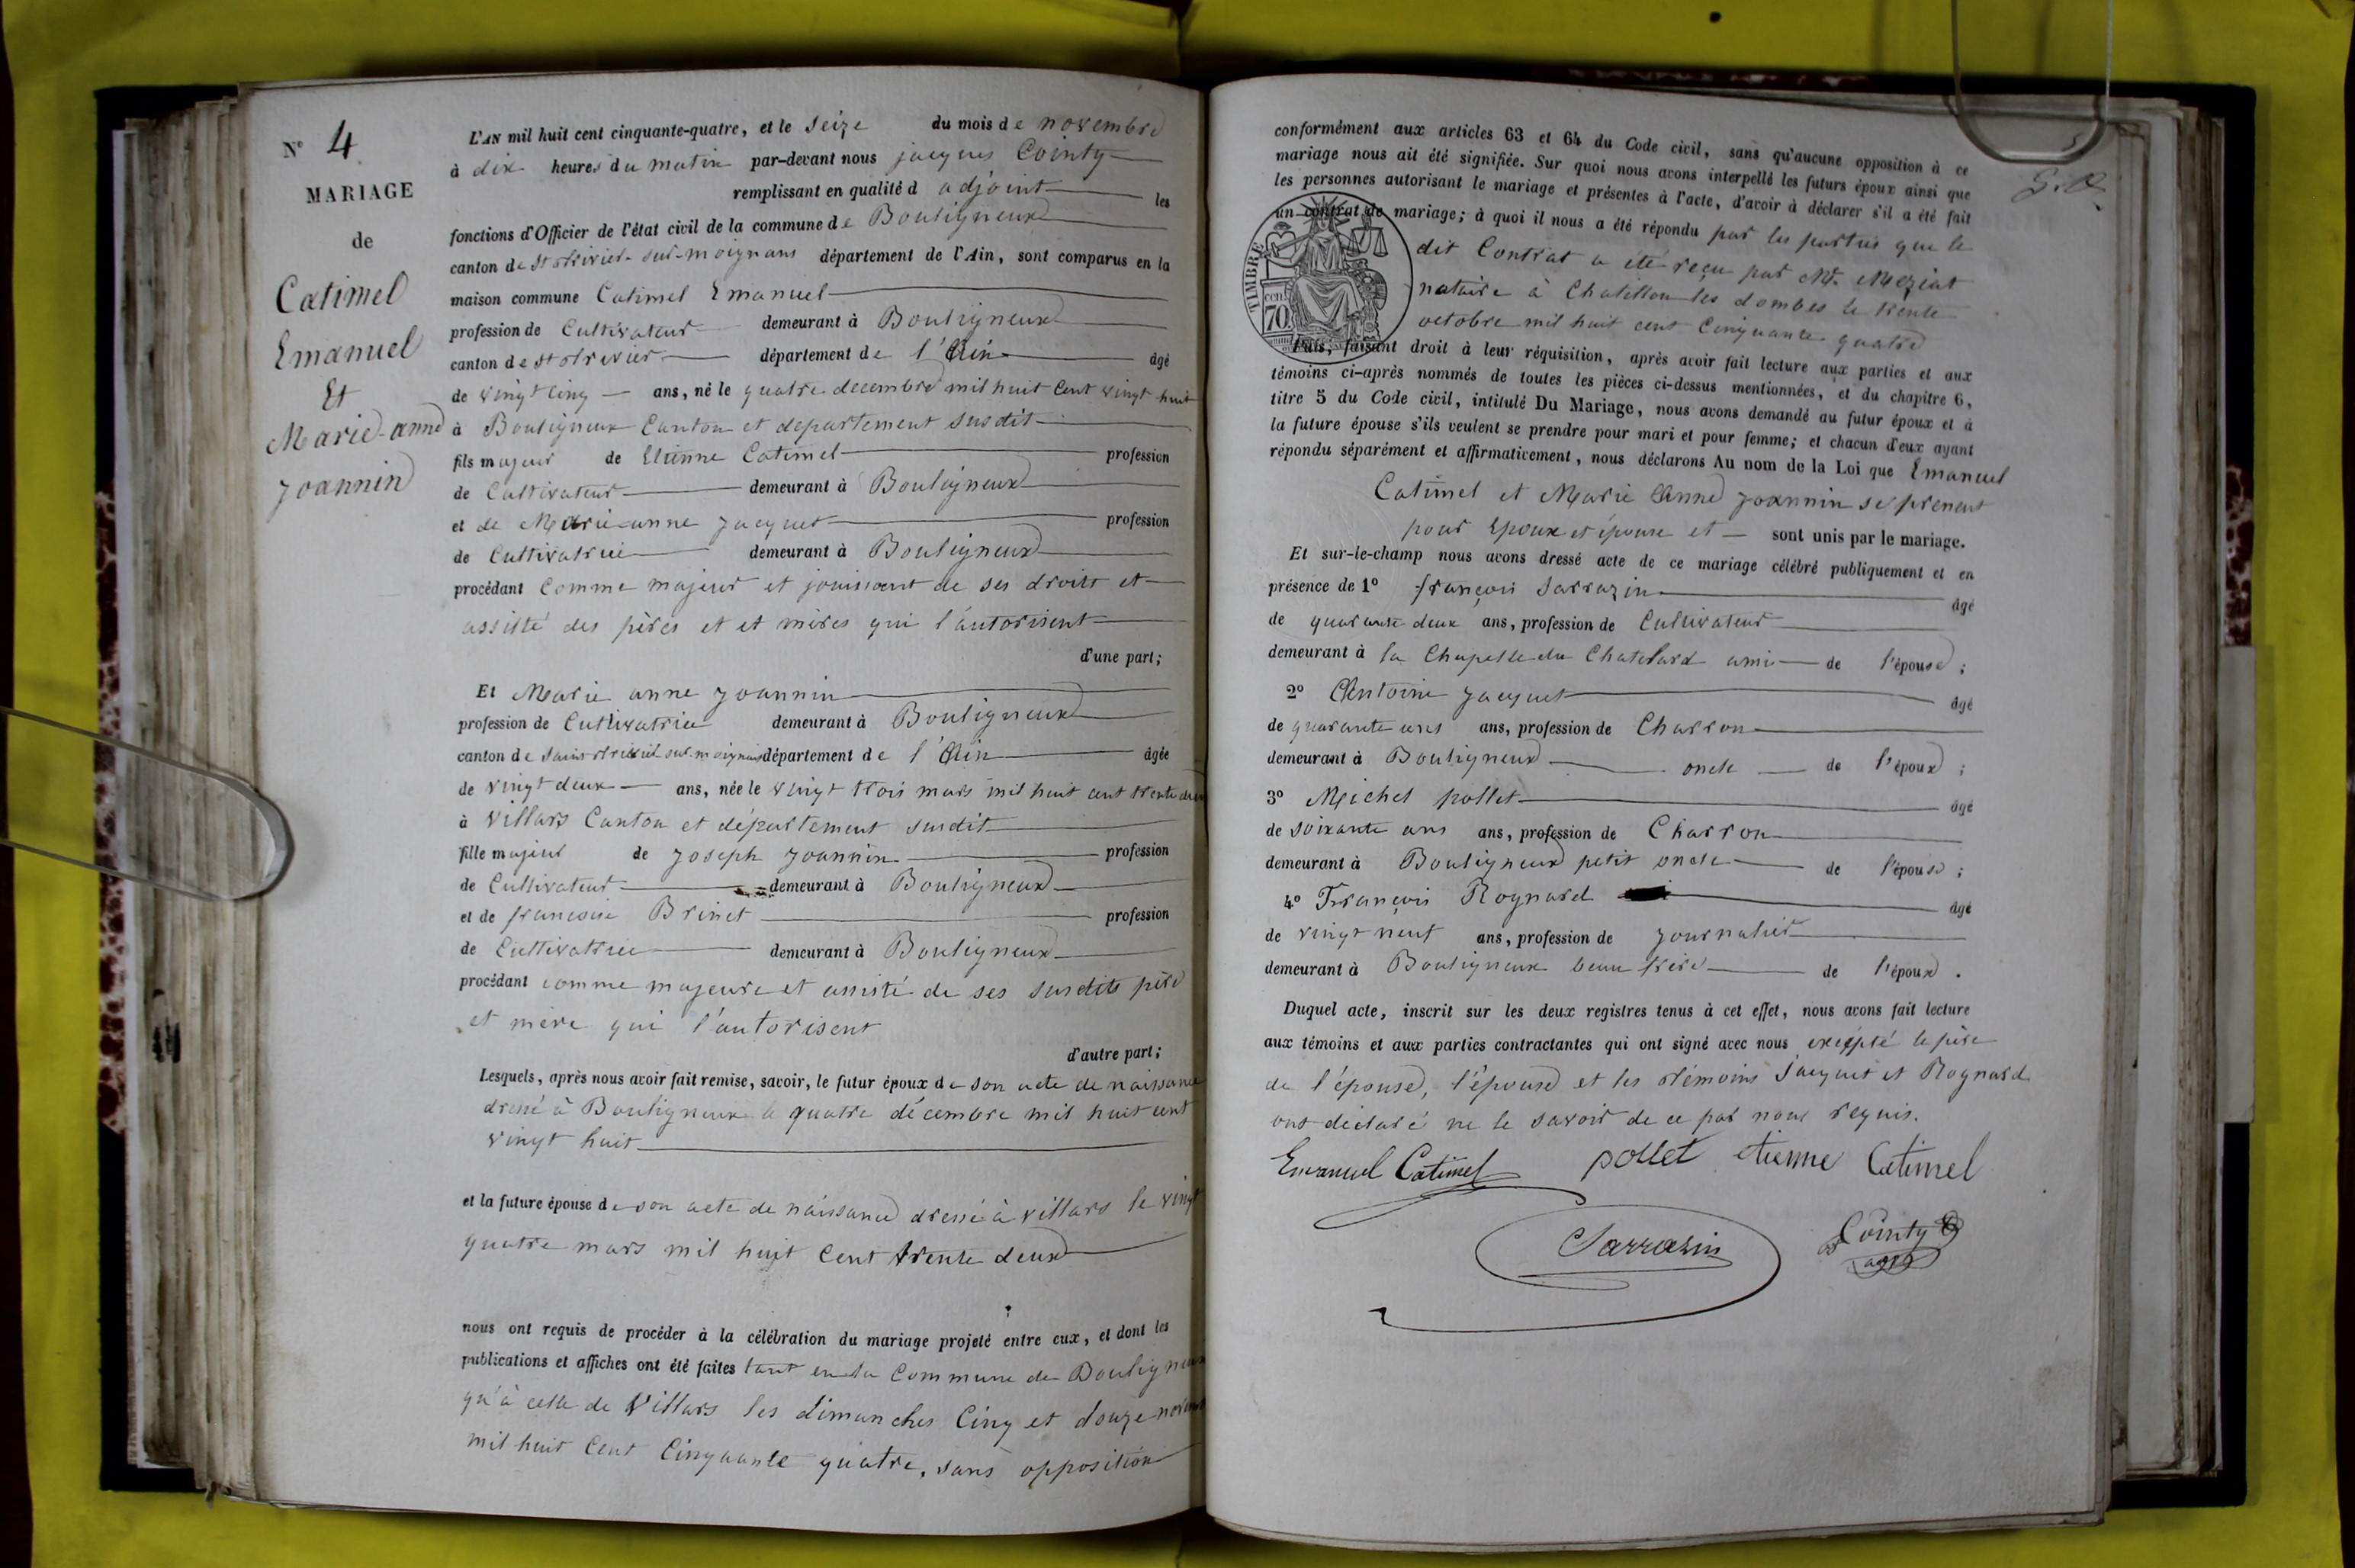 N° 4
MARIAGE
de
Catimel
Emanuel
Et
Marie-anne
Joannin
L'AN mil huit cent cinquante-quatre, et le Seize du mois de novembre
à dix heures du matin par-devant nous jacques Cointy
remplissant en qualité d adjoint les
fonctions d'Officier de l'état civil de la commune de Bouligneux
canton de St trivier-sur-moignans département de l'Ain, sont comparus en la
maison commune Catimel Emanuel
profession de Cultivateur demeurant à Bouligneux
canton de st trivier département de l'Ain âgé
de vingt cinq ans, né le quatre decembre mil huit Cent vingt huit
à Bouligneux Canton et departement susdit
fils majeur de Etienne Catimel profession
de Cultivateur demeurant à Bouligneux
et de Marie-anne Jacquet profession
de Cultivatrice demeurant à Bouligneux
procédant Comme majeur et jouissant de ses droits et
assisté des pères et et mères qui l'autorisent
d'une part;
Et Marie anne Joannin
profession de Cultivatrice demeurant à Bouligneux
canton de saint trivier sur moignans département de l'Ain âgée
de vingt deux ans, née le vingt trois mars mil huit cent trente deux
à Villars Canton et département susdit
fille majeur de Joseph Joannin profession
de Cultivateur demeurant à Bouligneux
et de francoise Brinet profession
de Cultivatrice demeurant à Bouligneux
procédant comme majeure et assisté de ses susdits père
et mère qui l'autorisent
d'autre part;
Lesquels, après nous avoir fait remise, savoir, le futur époux de son acte de naissance
dressé à Bouligneux le quatre décembre mil huit cent
vingt huit
et la future épouse de son acte de naissance dressé à villars le vingt
quatre mars mil huit Cent trente deux
nous ont requis de procéder à la célébration du mariage projeté entre eux, et dont les
publications et affiches ont été faites tant en la Commune de Bouligneux
qu'à celle de Villars les dimanches Cinq et douze novembre
mil huit Cent Cinquante quatre, sans opposition
conformément aux articles 63 et 64 du Code civil, sans qu'aucune opposition à ce
mariage nous ait été signifiée. Sur quoi nous avons interpellé les futurs époux ainsi que
les personnes autorisant le mariage et présentes à l'acte, d'avoir à déclarer s'il a été fait
un contrat de mariage; à quoi il nous a été répondu par les parties que le
dit Contrat a été reçu par Mt. Meziat
notaire à Chatillon les dombes le trente
octobre mil huit cent Cinquante quatre
TIMBRE
70 cent
Puis, faisant droit à leur réquisition, après avoir fait lecture aux parties et aux
témoins ci-après nommés de toutes les pièces ci-dessus mentionnées, et du chapitre 6,
titre 5 du Code civil, intitulé Du Mariage, nous avons demandé au futur époux et à
la future épouse s'ils veulent se prendre pour mari et pour femme; et chacun d'eux ayant
répondu séparément et affirmativement, nous déclarons Au nom de la Loi que Emanuel
Catimel et Marie Anne Joannin se prenent
pour Epoux et épouse et sont unis par le mariage.
Et sur-le-champ nous avons dressé acte de ce mariage célébré publiquement et en
présence de 1° françois Sarrazin âgé
de quarante deux ans, profession de Cultivateur
demeurant à la Chapelle du Chatelard ami de l'épouse;
2° Antoine Jacquet âgé
de quarante ans ans, profession de Charron
demeurant à Bouligneux oncle de l'époux;
3° Michel pollet âgé
de soixante ans ans, profession de Charron
demeurant à Bouligneux petit oncle de l'épouse;
4° François Rognard âgé
de vingt neuf ans, profession de Journalier
demeurant à Bouligneux beau frère de l'époux.
Duquel acte, inscrit sur les deux registres tenus à cet effet, nous avons fait lecture
aux témoins et aux parties contractantes qui ont signé avec nous exepté le père
de l'épouse, l'épouse et les témoins Jacquet et Rognard
ont déclaré ne le savoir de ce par nous requis.
Emanuel Catimel pollet etienne Catimel
Sarrazin Cointy